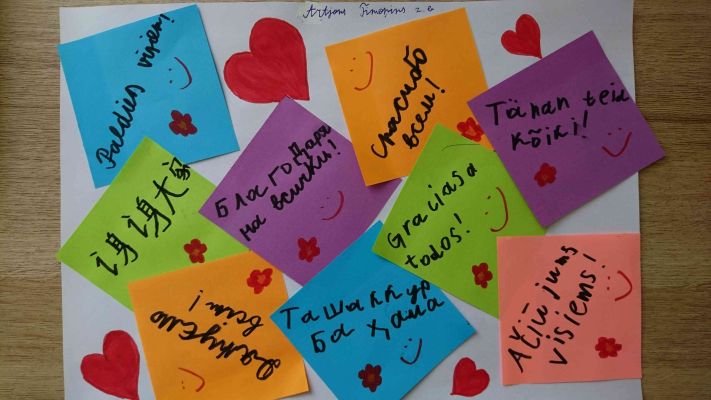 Artjoms
Paldies visiem!
Спасибо
всем!
Tänan teid
kõiki!
谢谢大家
Благодаря
на всички!
Gracias a
todos!
Дякуємо
всім!
Ташаккур
Ба ҳама
Ačiū jums
visiems!